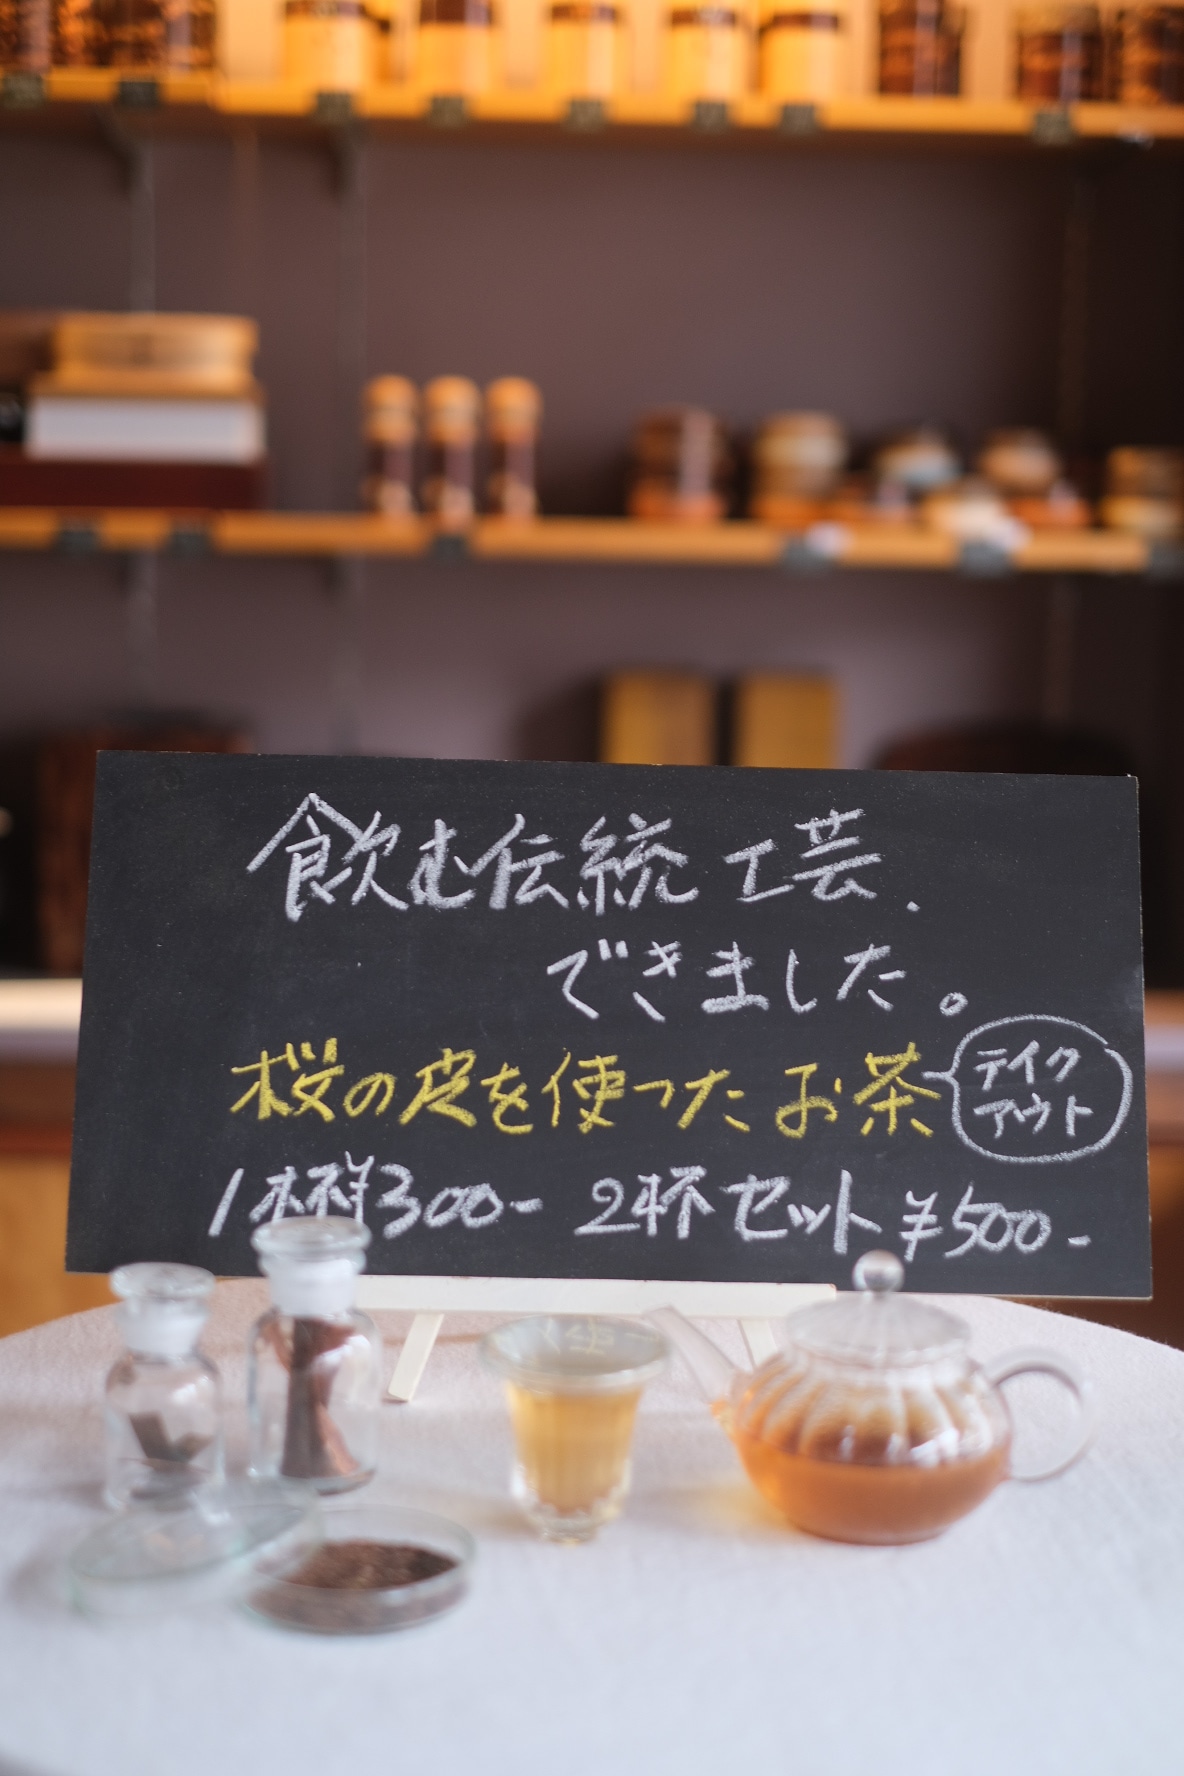 飲む伝統工芸.
できました。
桜の皮を使ったお茶
テイク
アウト
1杯¥300- 2杯セット¥500-